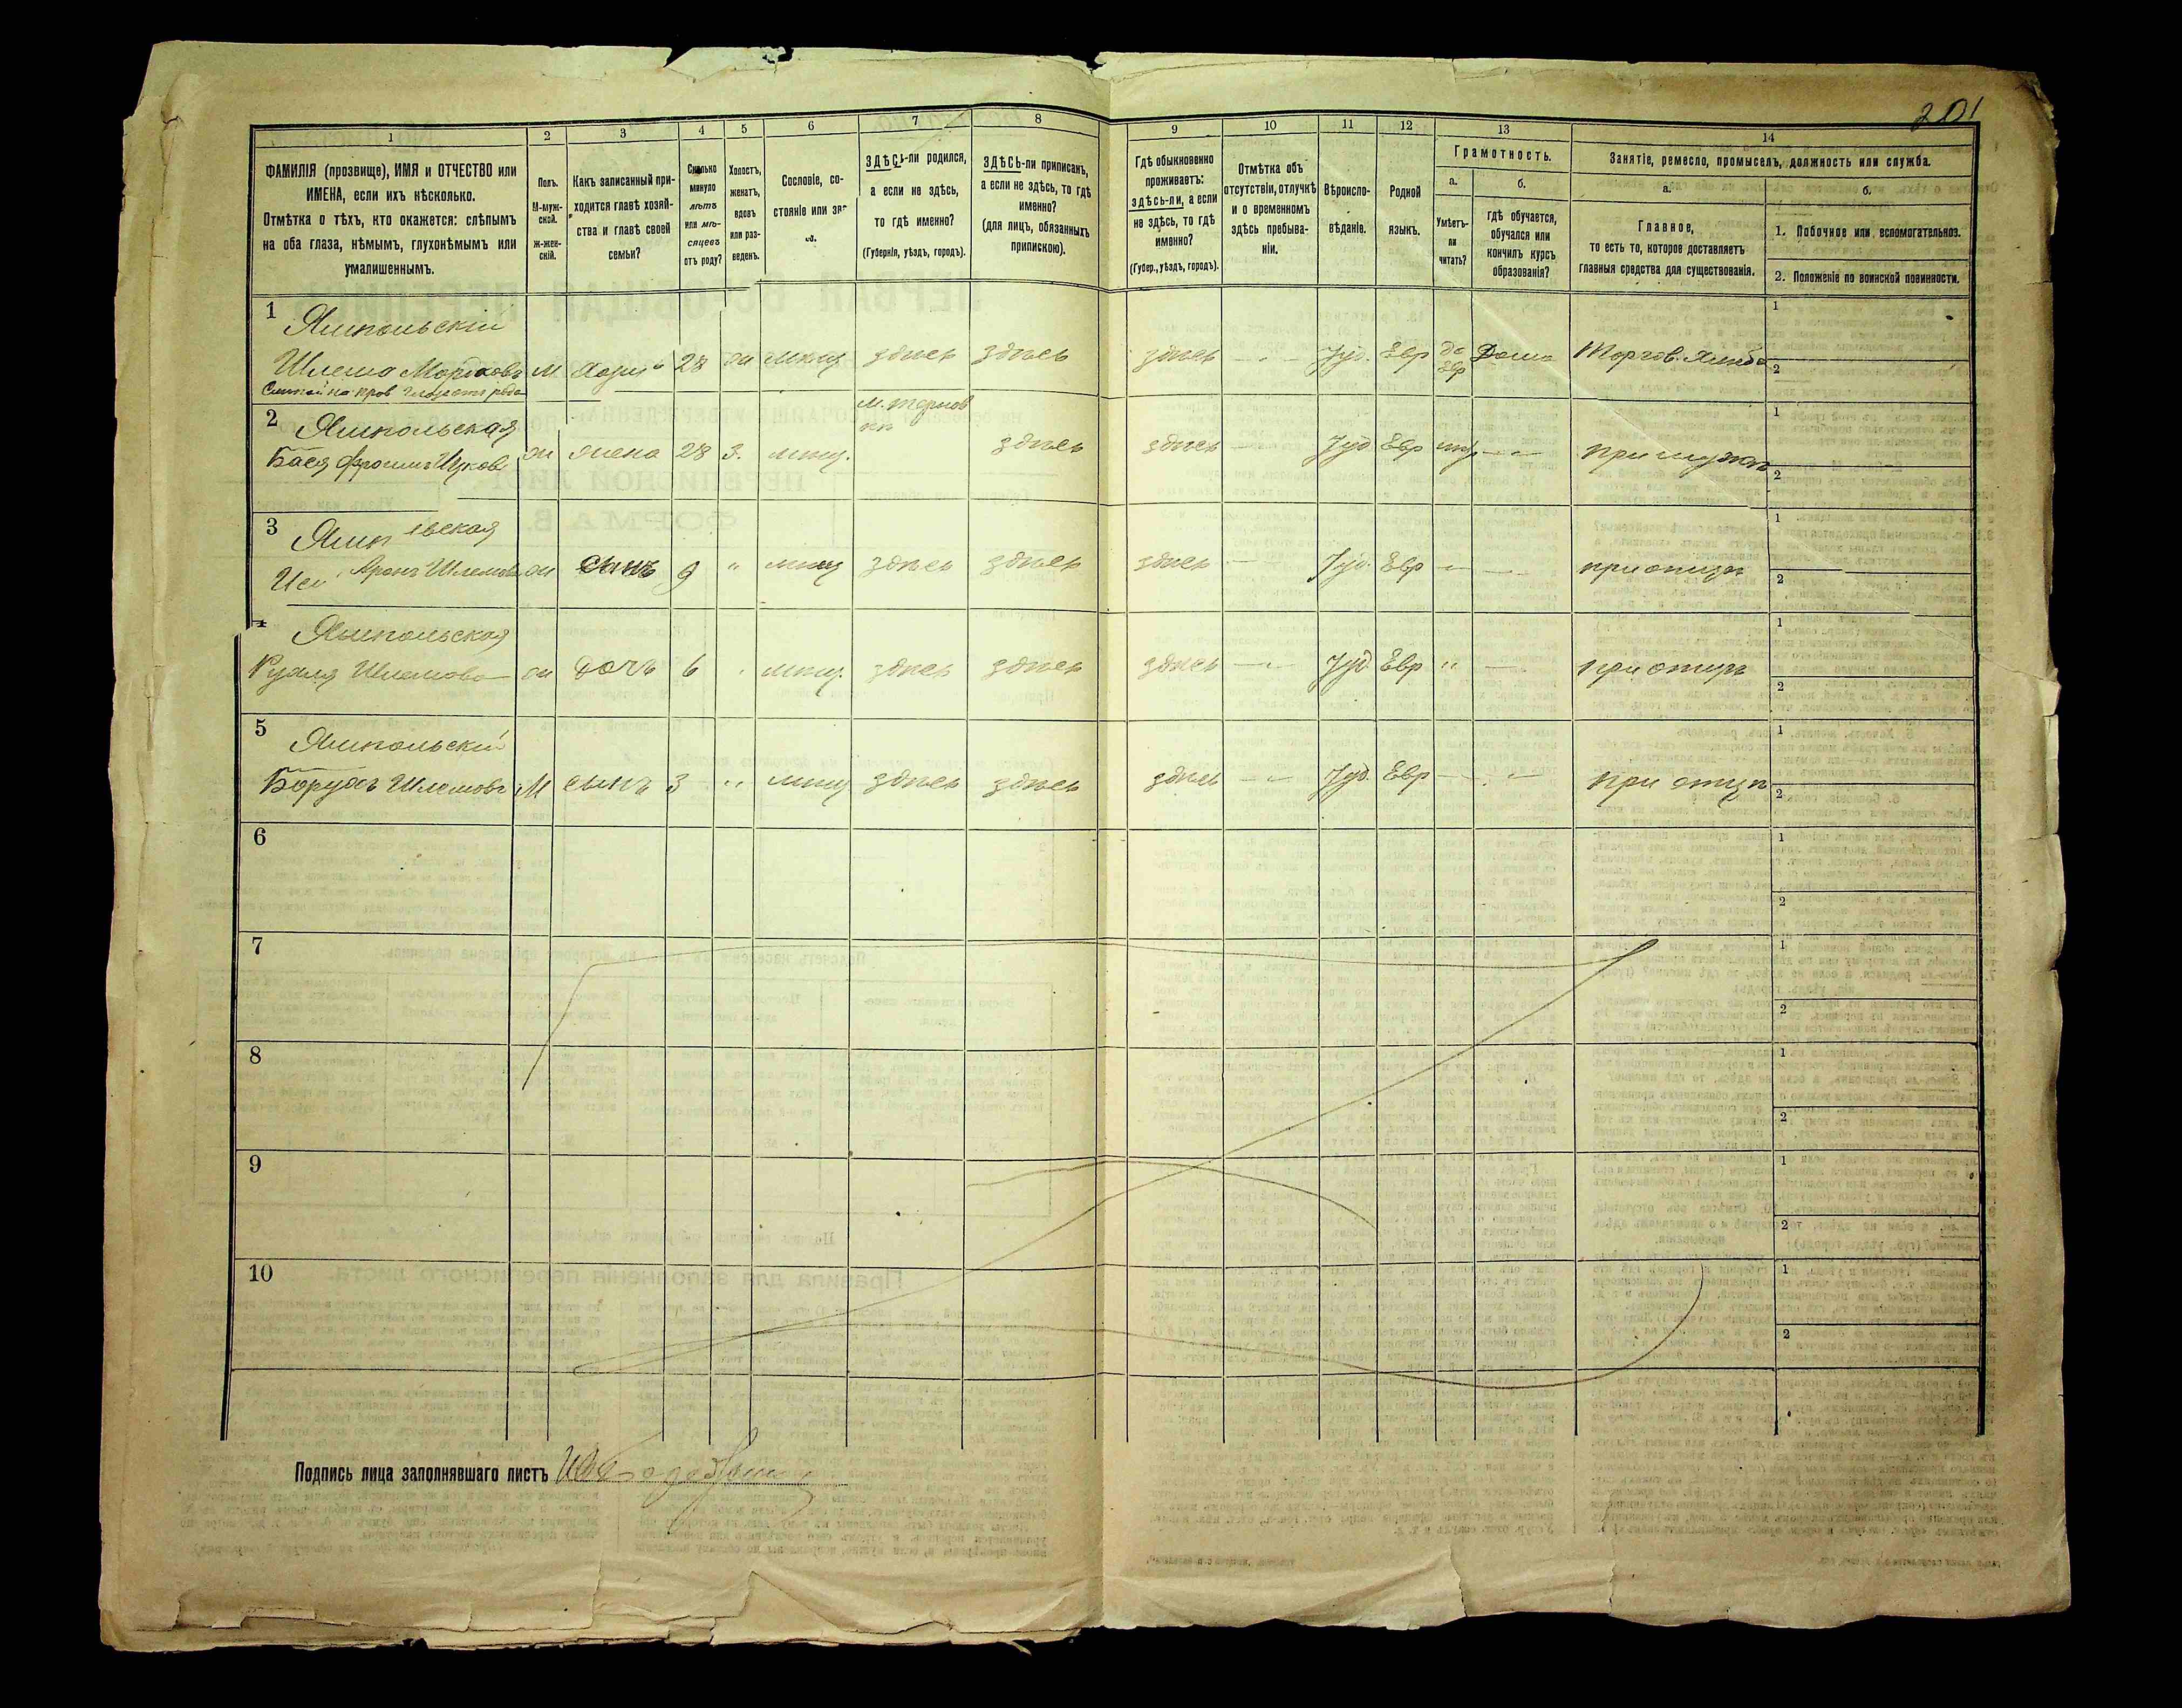 201
1 2 3 4 5 6 7 8 9 10 11 12 13 14
ФАМИЛІЯ (прозвище), ИМЯ и ОТЧЕСТВО или
ИМЕНА, если ихъ нѣсколько.
Отмѣтка о тѣхъ, кто окажется: слѣпымъ
на оба глаза, нѣмымъ, глухонѣмымъ или
умалишеннымъ.
Полъ.
М-муж-
ской.
ж-жен-
скій.
Какъ записанный при-
ходится главѣ хозяй-
ства и главѣ своей
семьи?
Сколько
минуло
лѣтъ
или мѣ-
сяцевъ
отъ роду?
Холостъ,
женатъ,
вдовъ
или раз-
веденъ.
Сословіе, со-
стояніе или зв
ЗДѢСЬ-ли родился,
а если не здѣсь,
то гдѣ именно?
(Губернія, уѣздъ, городъ).
ЗДѢСЬ-ли приписанъ,
а если не здѣсь, то гдѣ
именно?
(для лицъ, обязанныхъ
припискою).
Гдѣ обыкновенно
проживаетъ:
здѣсь-ли, а если
не здѣсь, то гдѣ
именно?
(Губер., уѣздъ, городъ).
Отмѣтка объ
отсутствіи, отлучкѣ
и о временномъ
здѣсь пребыва-
ніи.
Вѣроиспо-
вѣданіе.
Родной
языкъ.
Грамотность.
а.
Умѣетъ-
ли
читать?
б.
гдѣ обучается,
обучался или
кончилъ курсъ
образованія?
Занятіе, ремесло, промыселъ, должность или служба.
а.
Главное,
то есть то, которое доставляетъ
главныя средства для существованія.
б.
1. Побочное или вспомогательное.
2. Положеніе по воинской повинности.
1 Ямпольскій
Шлема Мордковъ М хозяи 28 жи мѣщ. здѣсь здѣсь здѣсь Іуд. Евр да Дома Торгов. хлѣбо
1
2
2 Ямпольская м. Тернов
Бася жена 28 з. мѣщ. здѣсь здѣсь Іуд Евр при мужѣ
1
2
3 Ямп ьская
Аронъ Шлемов сынъ 9 " мѣщ здѣсь здѣсь здѣсь Іуд. Евр при отцѣ
1
2
4 Ямпольская
Рухля Шлемова дочь 6 " мѣщ. здѣсь здѣсь здѣсь Іуд Евр " при отцѣ
1
2
5 Ямпольскій
Борухъ Шлемовъ М сынъ 3 " мѣщ здѣсь здѣсь здѣсь Іуд. Евр при отцѣ
1
2
6
1
2
7
1
2
8
1
2
9
1
2
10
1
2
Подпись лица заполнявшаго листъ